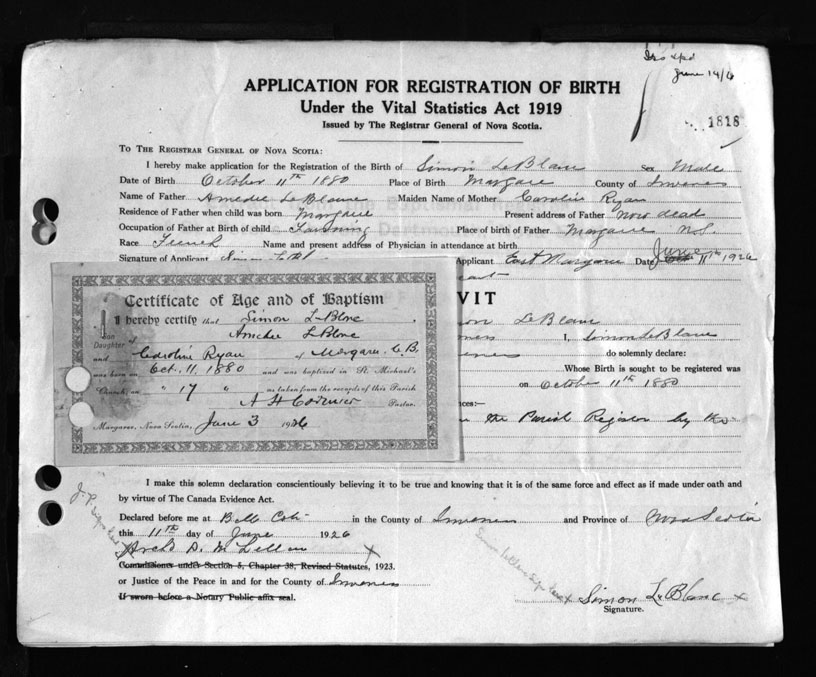 June 14/6
APPLICATION FOR REGISTRATION OF BIRTH
Under the Vital Statistics Act 1919
Issued by The Registrar General of Nova Scotia.
1818
TO THE REGISTRAR GENERAL OF NOVA SCOTIA:
I hereby make application for the Registration of the Birth of Simon LeBlanc Sex Male
Date of Birth October 11th 1880 Place of Birth Margaree County of Inverness
Name of Father Amedie LeBlanc Maiden Name of Mother Caroline Ryan
Residence of Father when child was born Margaree Present address of Father now dead
Occupation of Father at Birth of child Farming Place of birth of Father Margaree N.S.
Race French Name and present address of Physician in attendance at birth
Signature of Applicant Simon LeBl Applicant East Margaree Date June 11th 1926
VIT
LeBlanc
I, Simon LeBlanc
do solemnly declare:
Whose Birth is sought to be registered was
on October 11th 1880
ces:—
the Parish Register by the
Certificate of Age and of Baptism
I hereby certify that Simon LeBlnc
Son of Amedie LeBlnc
Daughter
and Caroline Ryan of Margaree C.B.
was born on Oct. 11, 1880 and was baptized in St. Michael's
Church, on " 17 " as taken from the records of this Parish
A H Cormier Pastor.
Margaree, Nova Scotia, June 3 1926
I make this solemn declaration conscientiously believing it to be true and knowing that it is of the same force and effect as if made under oath and
by virtue of The Canada Evidence Act.
Declared before me at Belle Cote in the County of Inverness and Province of Nova Scotia
this 11th day of June 1926
Arch'd D. McLellan X
Commissioners under Section 5, Chapter 38, Revised Statutes, 1923.
or Justice of the Peace in and for the County of Inverness
If sworn before a Notary Public affix seal.
Simon LeBlanc x
Signature.